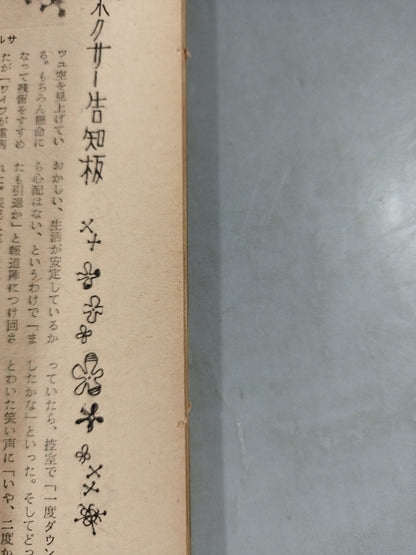 ボクサー告知板
ツュ空を見上げてい
る。もちろん懸命に
なって残留をすすめ
たが「ワイフが
おかしい、生活が安定しているか
ら心配はない、というわけで「ま
たも引退か」と報道陣につけ回さ
っていたら、控室で「一度ダウン
したかな」といった。そしてどっ
とわいた笑い声に「いや、二度か